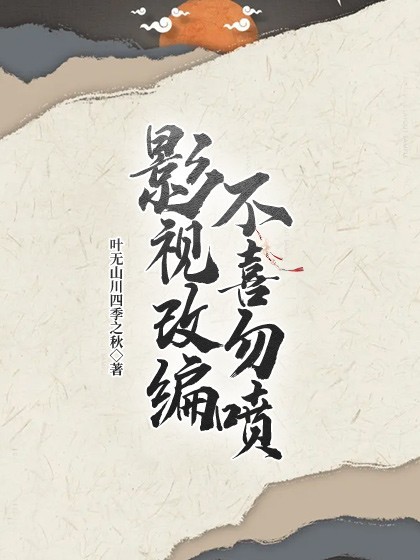 影视改编
不喜勿喷
叶无山川四季之秋◇著